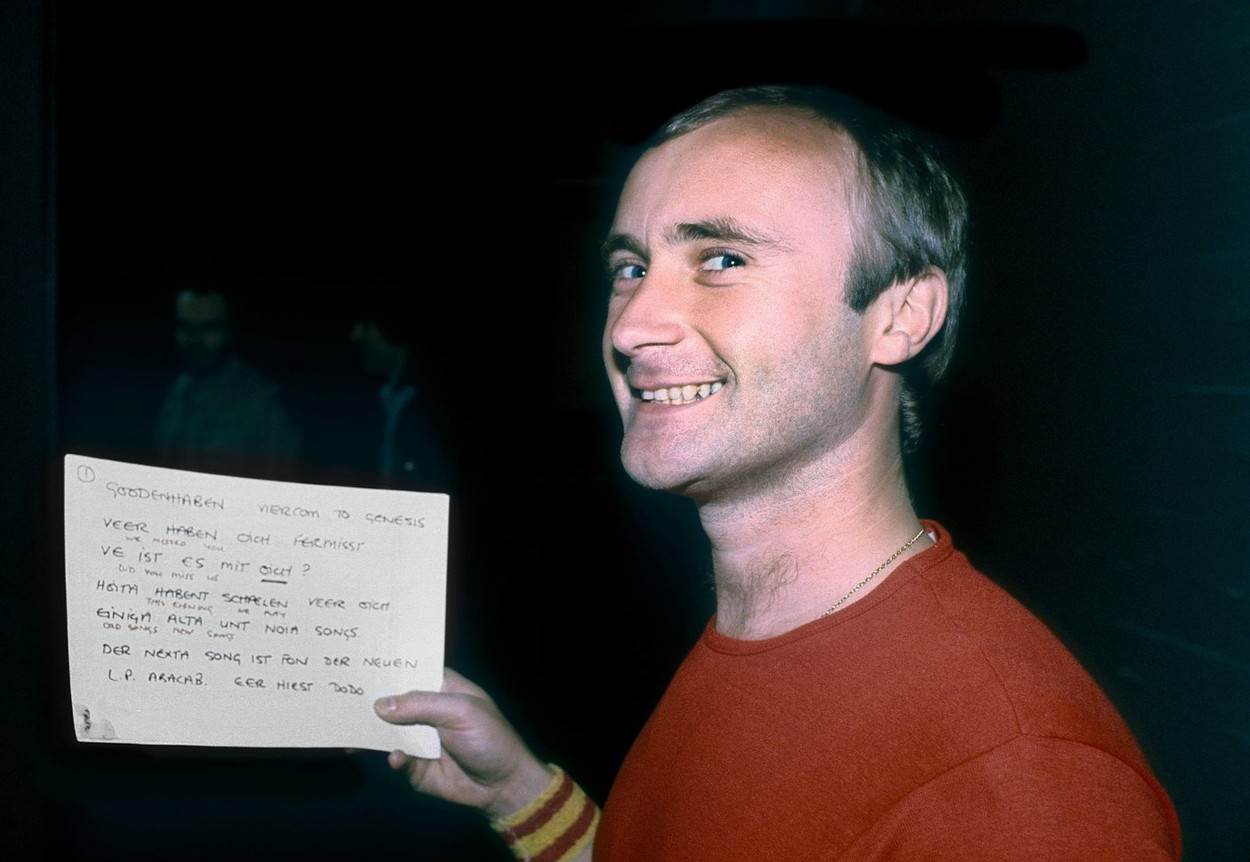 ①
GOODENHABEN VIERCOM TO GENESIS
VEER HABEN DICH FERMISST
WE MISSED YOU
VE IST ES MIT DICH ?
DID YOU MISS US
HOITA HABENT SCHPELEN VEER DICH
THIS EVENING WE PLAY
EINIGA ALTA UNT NOIA SONGS.
OLD SONGS NEW SONGS
DER NEXTA SONG IST FON DER NEUEN
L.P. ABACAB. EER HIEST DODO